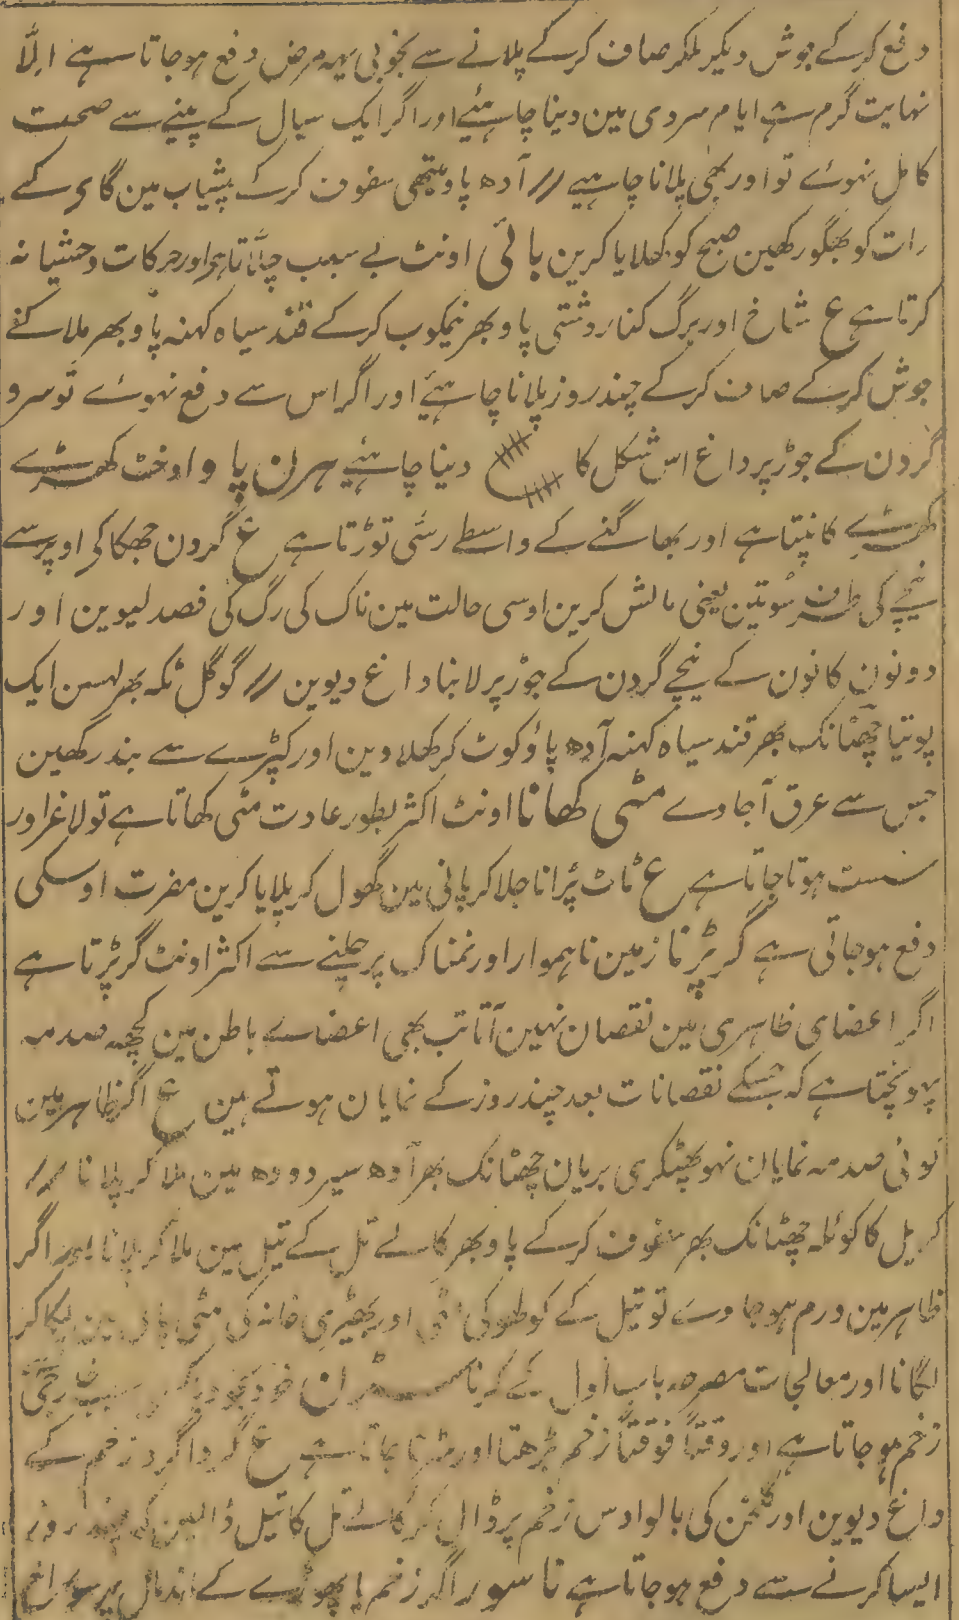 دفع کرکے جوش دیکر ملکر صاف کرکے پلانے سے بخوبی یہہ مرض دفع ہوجاتا ہے اِلّا
نہایت گرم ہے ایام سردی مین دینا چاہئیے اور اگر ایک سیال کے پینے سے صحت
کامل نہوے تو اور بھی پلانا چاہیے // آدھ پاو میتھی سفوف کرکے پیشاب مین گای کے
رات کو بھگو رکھین صبح کو کھلایا کرین بائی اونٹ بے سبب چلّاتا ہی اور حرکات وحشیانہ
کرتا ہے ع شاخ اور برگ کنار دشتی پاو بھر نیمکوب کرکے قند سیاہ کہنہ پاو بھر ملاکے
جوش کرکے صاف کرکے چند روز پلانا چاہئے اور اگر اس سے دفع نہوے تو سر و
گردن کے جوڑ پر داغ اس شکل کا دینا چاہئیے ہرن پا و اونٹ کھڑے
کھڑے کانپتا ہے اور بھاگنے کے واسطے رسّی توڑتا ہے ع گردن جھکا کی اوپر سے
نیچے کی طرف سُوتین یعنی مالش کرین اوسی حالت مین ناک کی رگ کی فصد لیوین اور
دونون کانون کے نیچے گردن کے جوڑ پر لانبا داغ دیوین // گوگل ٹکہ بھر لہسن ایک
پوتیا چھٹانک بھر قند سیاہ کہنہ آدھ پاؤ کوٹ کر کھلاوین اور کپڑے سے بند رکھین
جس سے عرق آجاوے مٹی کھانا اونٹ اکثر بطور عادت مٹی کھاتا ہے تو لاغر اور
سست ہوتا جاتا ہے ع ٹاٹ پُرانا جلاکر پانی مین گھول کر پلایا کرین مضرت اوسکی
دفع ہوجاتی ہے گر پڑنا زمین ناہموار اور نمناک پر چلنے سے اکثر اونٹ گر پڑتا ہے
اگر اعضای ظاہری مین نقصان نہین آتا تب بھی اعضاے باطن مین کچھہ صدمہ
پہونچتا ہے کہ جسکے نقصانات بعد چند روز کے نمایان ہوتے ہین ع اگر ظاہر مین
کوئی صدمہ نمایان نہو پھٹکری بریان چھٹانک بھر آدھ سیر دودھ مین ملاکر پلانا //
کریل کا کوئلہ چھٹانک بھر سفوف کرکے پاو بھر کالے تل کے تیل مین ملاکر پلانا اور اگر
ظاہر مین ورم ہوجاوے تو تیل کے کولھو کی اور بھیڑی خانہ کی مٹی مین پکاکر
لگانا اور معالجات مصرحہ باب اول کے کرنا سٹران خود بخود سبب خارجی
زخم ہوجاتا ہے اور وقتاً فوقتاً زخم بڑھتا اور سڑتا جاتا ہے ع گردا گرد زخم کے
داغ دیوین اور کی بالو اوس زخم پر ڈال کر کالے تل کا تیل ڈالین کہ چند روز
ایسا کرنے سے دفع ہوجاتا ہے ناسور اگر زخم یا پھوڑے کے اندمال پر